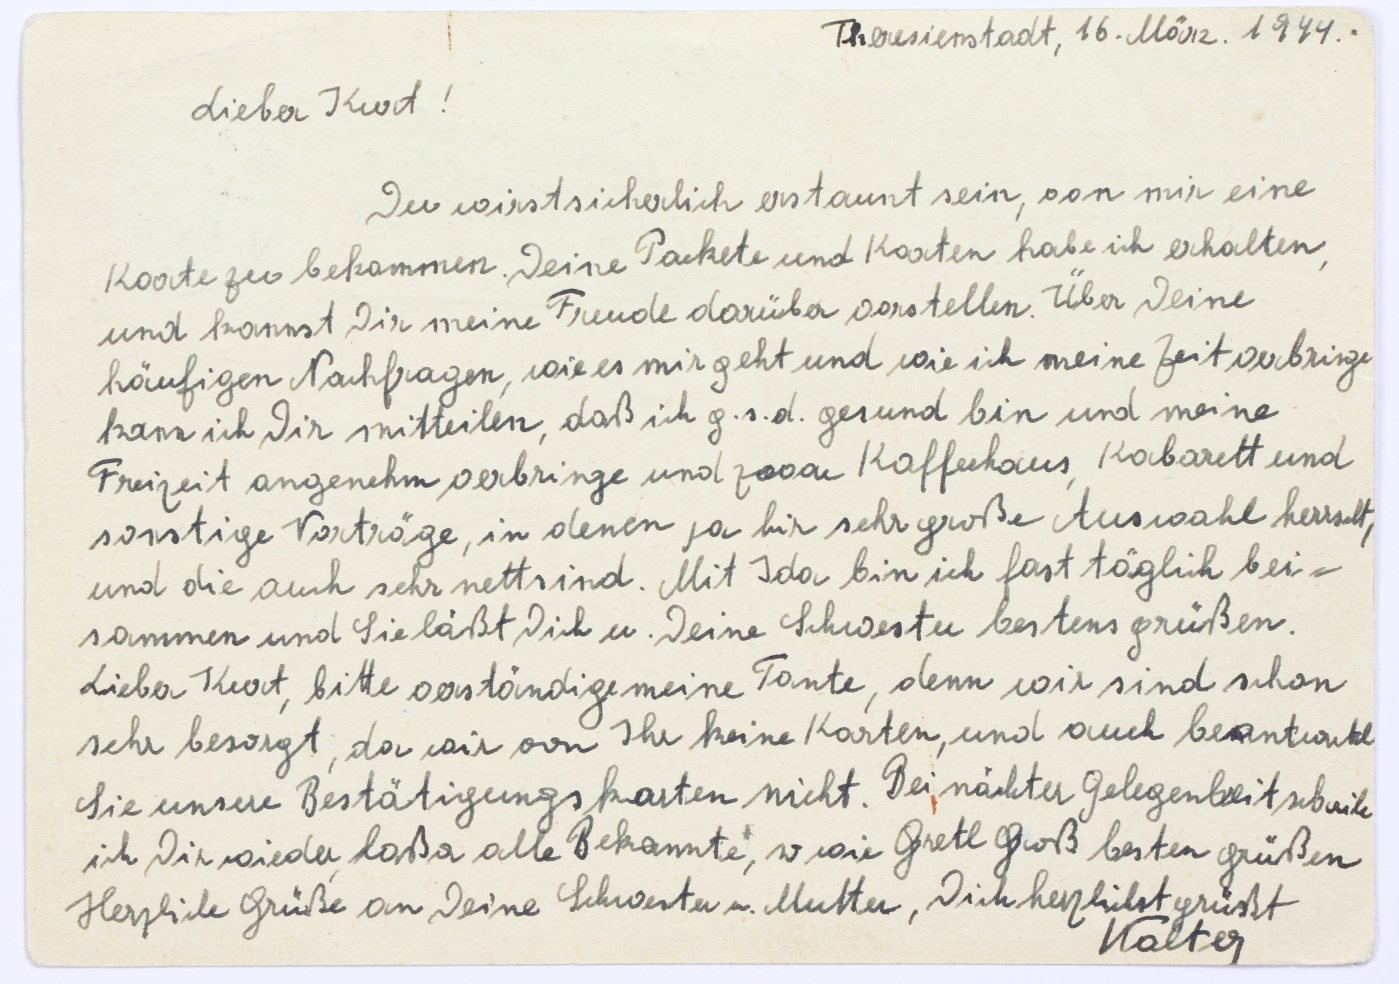 Theresienstadt, 16. März. 1944.
Lieber Kurt!
Du wirst sicherlich erstaunt sein, von mir eine
Karte zu bekommen. Deine Packete und Karten habe ich erhalten,
und kannst Dir meine Freude darüber vorstellen. Über Deine
häufigen Nachfragen, wie es mir geht und wie ich meine Zeit verbringe
kann ich Dir mitteilen, daß ich g.s.d. gesund bin und meine
Freizeit angenehm verbringe und zwar Kaffeehaus, Kabarett und
sonstige Vorträge, in denen ja hir sehr große Auswahl herrscht,
und die auch sehr nett sind. Mit Ida bin ich fast täglich bei=
sammen und Sie läßt Dich u. Deine Schwester bestens grüßen.
Lieber Kurt, bitte verständige meine Tante, denn wir sind schon
sehr besorgt, da wir von Ihr keine Karten, und auch beantwortet
Sie unsere Bestätigungskarten nicht. Bei nächter Gelegenheit schreibe
ich Dir wieder, laßa alle Bekannte, sowie Gretl Groß besten grüßen
Herzliche Grüße an Deine Schwester u. Mutter, Dich herzlichst grüßt
Walter